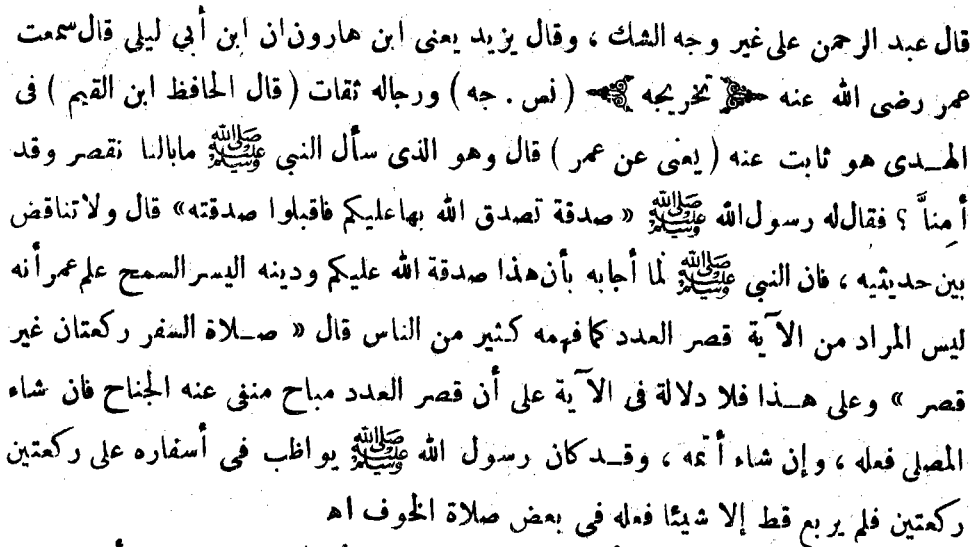 قال عبد الرحمن على غير وجه الشك ، وقال يزيد يعنى ابن هارون ان ابن أبي ليلى قال سمعت
عمر رضى الله عنه تخريجه ( نس . جه ) ورجاله ثقات ( قال الحافظ ابن القيم ) فى
الهـدى هو ثابت عنه ( يعنى عن عمر ) قال وهو الذى سأل النبي ﷺ ما بالنا نقصر وقد
أمنا ؟ فقال له رسول الله ﷺ « صدقة تصدق الله بها عليكم فاقبلوا صدقته » قال ولا تناقض
بين حديثيه ، فان النبي ﷺ لما أجابه بأن هذا صدقة الله عليكم ودينه اليسر السمح علم عمر أنه
ليس المراد من الآية قصر العدد كما فهمه كثير من الناس قال « صـلاة السفر ركعتان غير
قصر » وعلى هـذا فلا دلالة فى الآية على أن قصر العدد مباح منفى عنه الجناح فان شاء
المصلى فعله ، وإن شاء أتمه ، وقـد كان رسول الله ﷺ يواظب فى أسفاره على ركعتين
ركعتين فلم يربع قط إلا شيئا فعله فى بعض صلاة الخوف اهـ